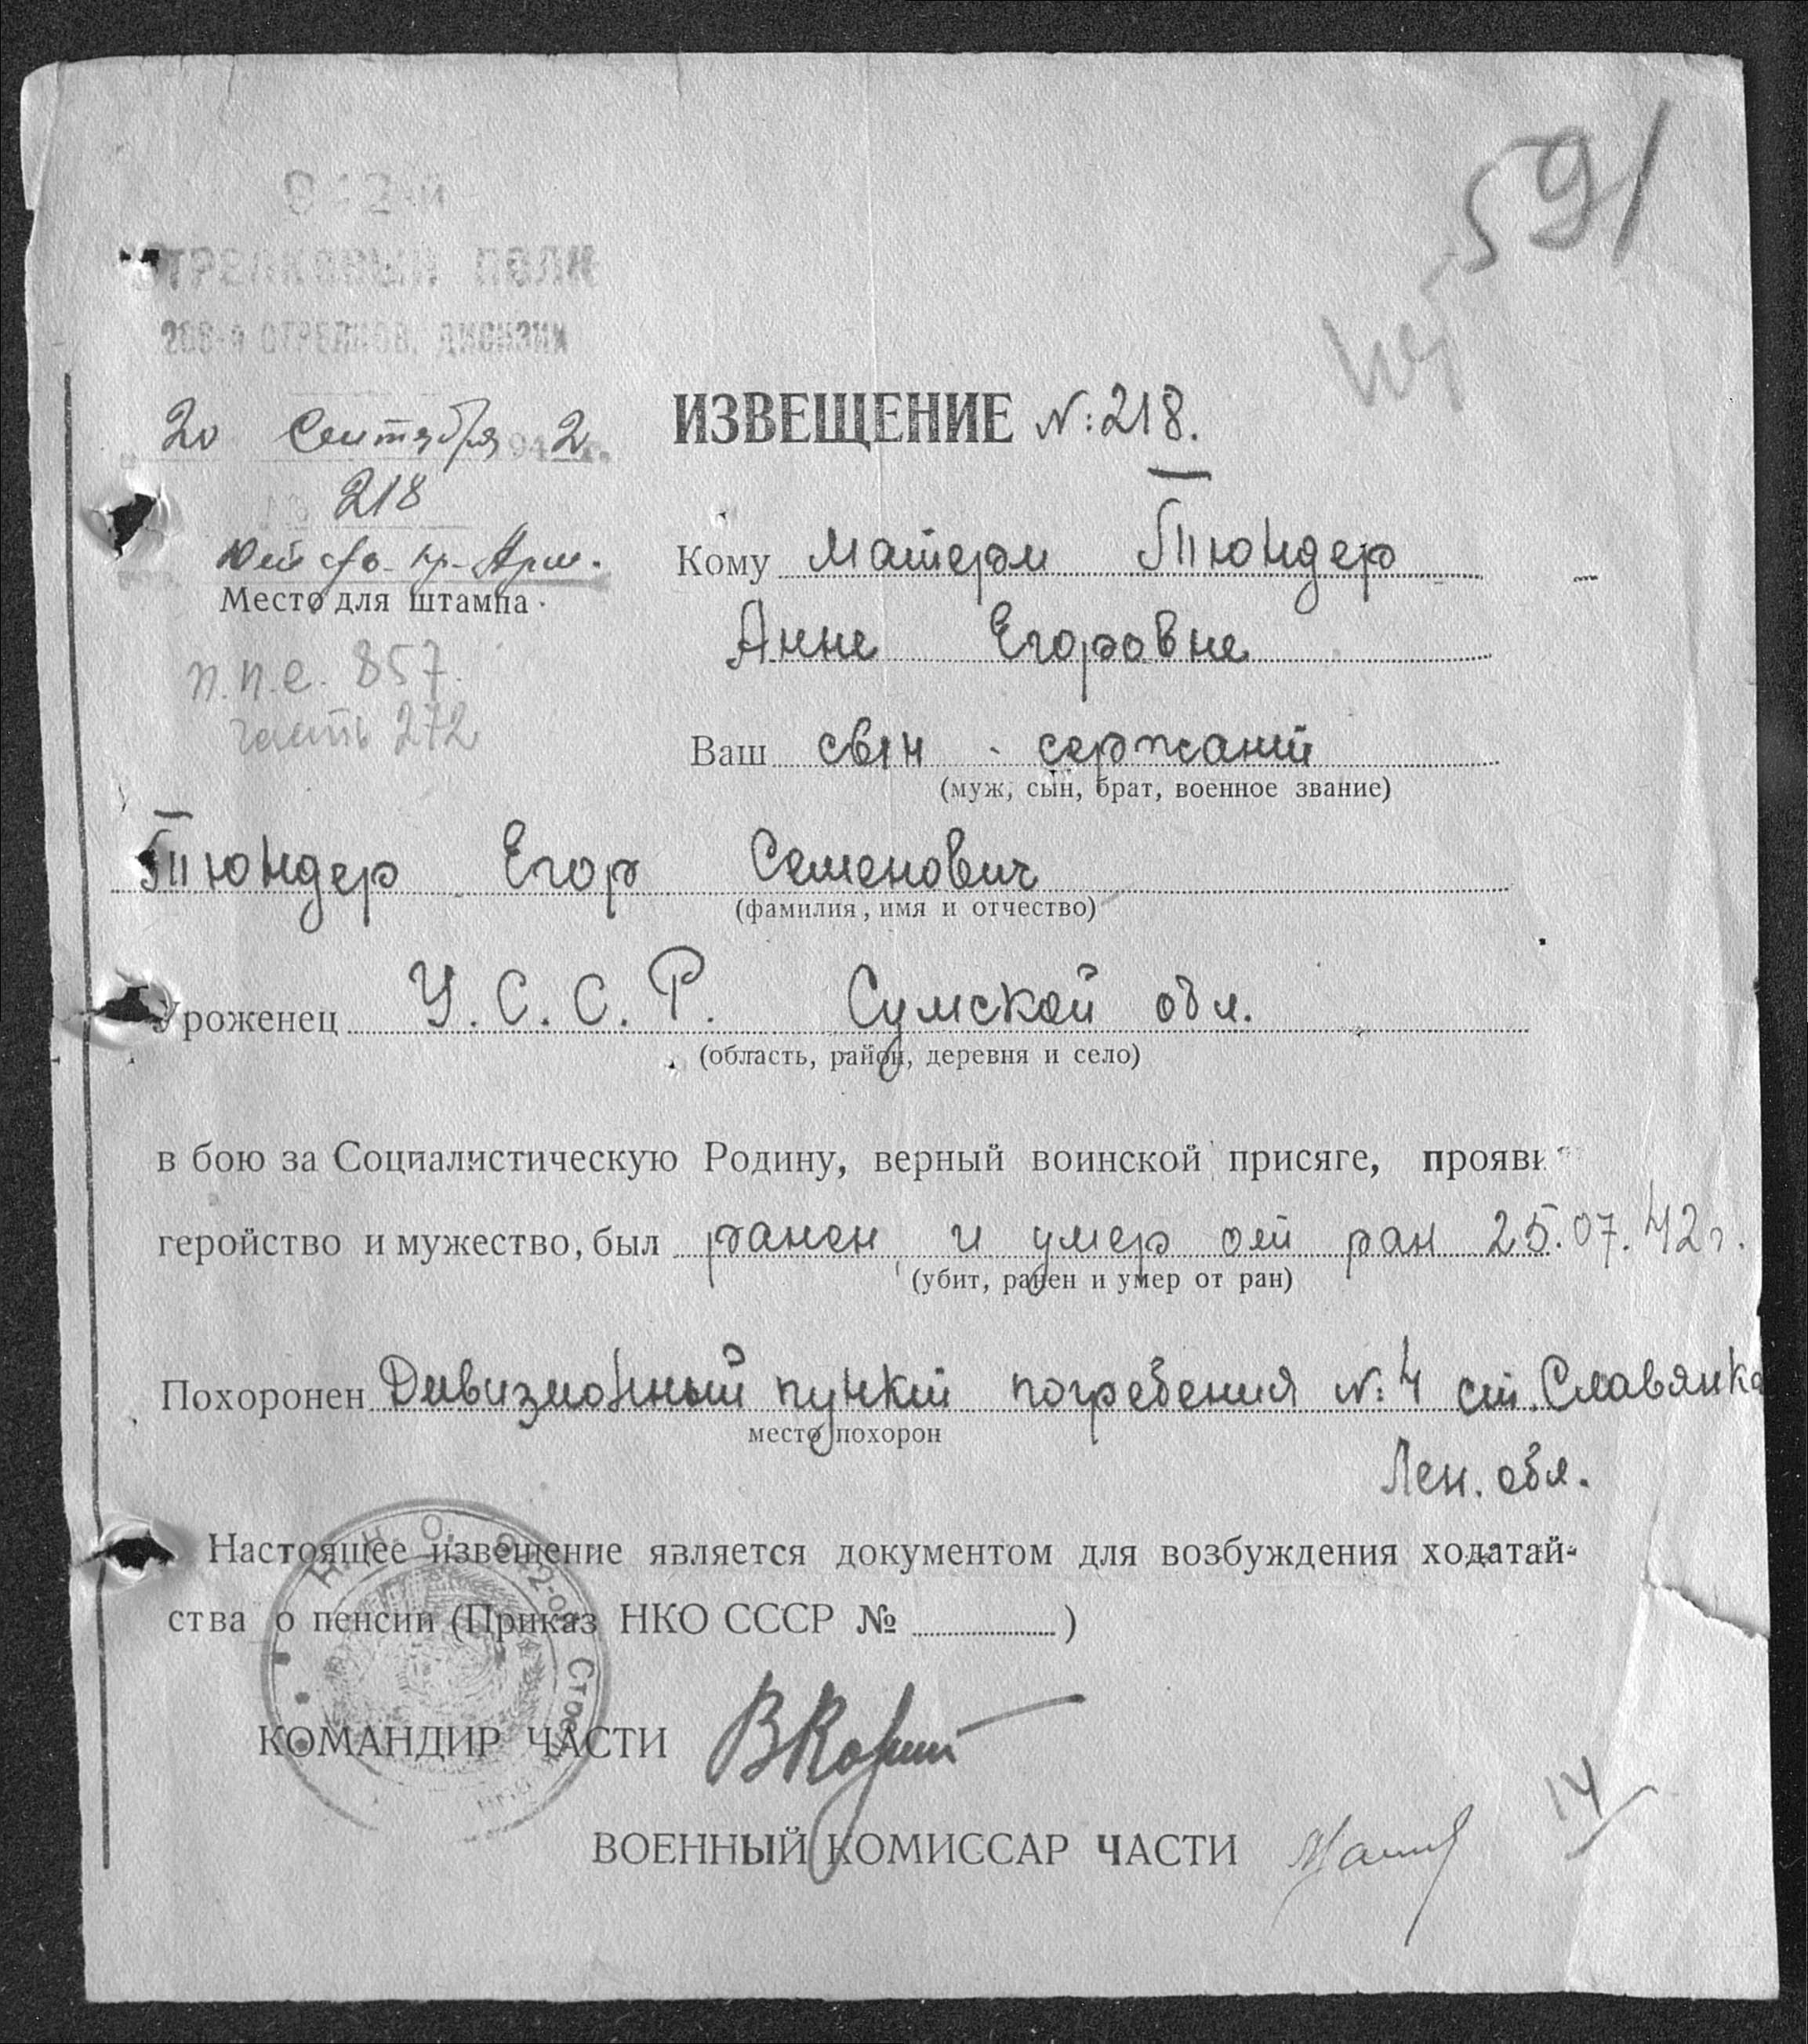 942-й
СТРЕЛКОВЫЙ ПОЛК
268-й СТРЕЛКОВ. ДИВИЗИИ
20 Сентября 1942 г.
№ 218
Место для штампа
п.п.с. 857.
часть 272
591
ИЗВЕЩЕНИЕ №: 218.
Кому Матери Тюндер
Анне Егоровне
Ваш сын - сержант
(муж, сын, брат, военное звание)
Тюндер Егор Семенович
(фамилия, имя и отчество)
Уроженец У.С.С.Р. Сумской обл.
(область, район, деревня и село)
в бою за Социалистическую Родину, верный воинской присяге, прояви
геройство и мужество, был ранен и умер от ран 25.07.42г.
(убит, ранен и умер от ран)
Похоронен Дивизионный пункт погребения №: 4 ст. Славянка
место похорон
Лен. обл.
Настоящее извещение является документом для возбуждения ходатай-
ства о пенсии (Приказ НКО СССР № )
Н.К.О. 942-ой
КОМАНДИР ЧАСТИ
14
ВОЕННЫЙ КОМИССАР ЧАСТИ